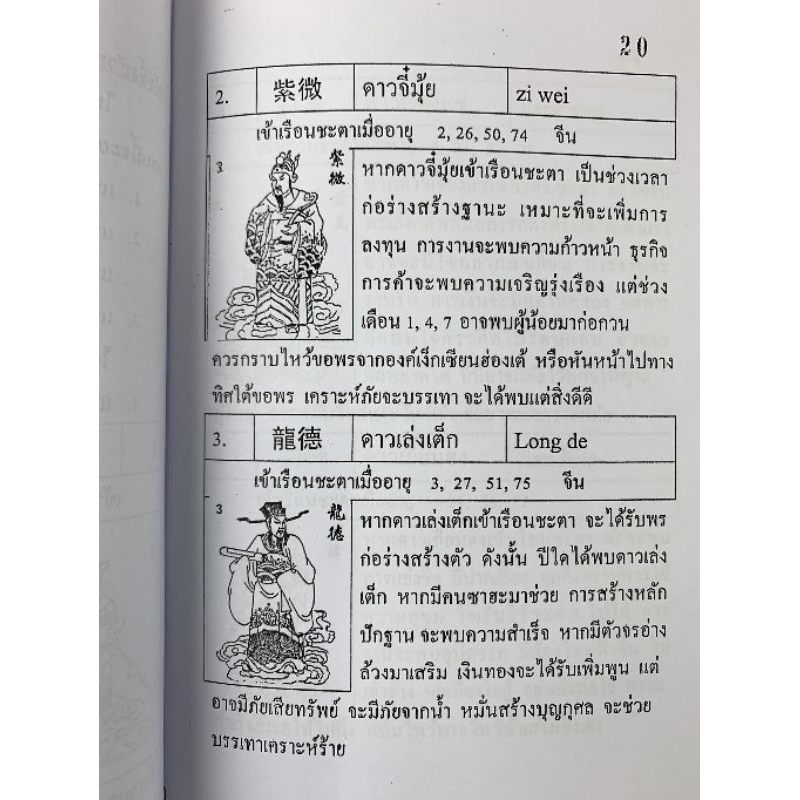 20
2. 紫微 ดาวจี๋มุ้ย zi wei
เข้าเรือนชะตาเมื่ออายุ 2, 26, 50, 74 จีน
紫微
หากดาวจี๋มุ้ยเข้าเรือนชะตา เป็นช่วงเวลา
ก่อร่างสร้างฐานะ เหมาะที่จะเพิ่มการ
ลงทุน การงานจะพบความก้าวหน้า ธุรกิจ
การค้าจะพบความเจริญรุ่งเรือง แต่ช่วง
เดือน 1, 4, 7 อาจพบผู้น้อยมาก่อกวน
ควรกราบไหว้ขอพรจากองค์เง็กเซียนฮ่องเต้ หรือหันหน้าไปทาง
ทิศใต้ขอพร เคราะห์ภัยจะบรรเทา จะได้พบแต่สิ่งดีดี
3. 龍德 ดาวเล่งเต็ก Long de
เข้าเรือนชะตาเมื่ออายุ 3, 27, 51, 75 จีน
3 龍德
หากดาวเล่งเต็กเข้าเรือนชะตา จะได้รับพร
ก่อร่างสร้างตัว ดังนั้น ปีใดได้พบดาวเล่ง
เต็ก หากมีคนซาฮะมาช่วย การสร้างหลัก
ปักฐาน จะพบความสำเร็จ หากมีตัวจรอ่าง
ล้วงมาเสริม เงินทองจะได้รับเพิ่มพูน แต่
อาจมีภัยเสียทรัพย์ จะมีภัยจากน้ำ หมั่นสร้างบุญกุศล จะช่วย
บรรเทาเคราะห์ร้าย